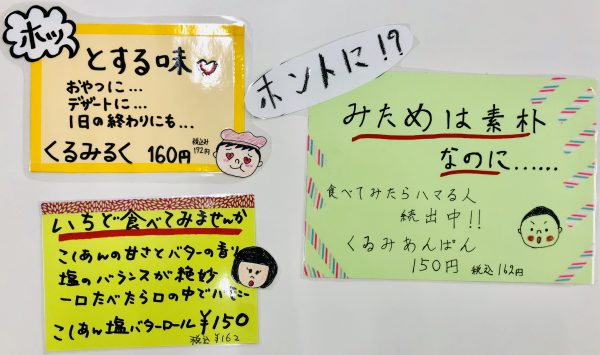 ホッ
とする味
おやつに…
デザートに…
1日の終わりにも…
くるみるく 160円 税込み 172円
ホントに!?
みためは素朴
なのに……
食べてみたらハマる人
続出中!!
くるみあんぱん
150円 税込162円
いちど食べてみませんか
こしあんの甘さとバターの香り
塩のバランスが絶妙
一口たべたら口の中でハーモニー
こしあん塩バターロール ¥150
税込 ¥162